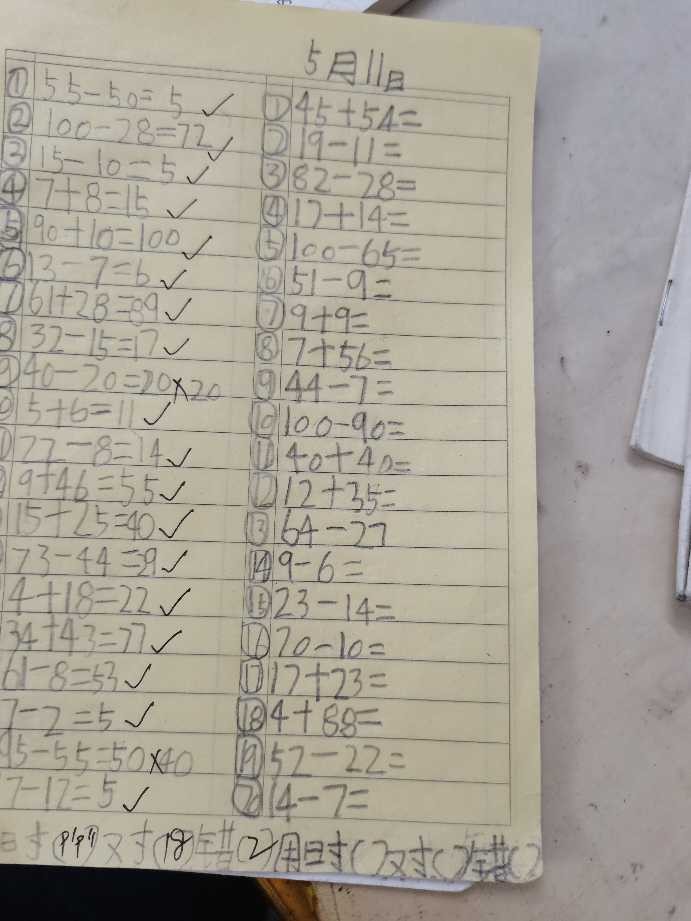 5月11日
① 55-50=5 ✓
② 100-28=72 ✓
③ 15-10=5 ✓
④ 7+8=15 ✓
⑤ 90+10=100 ✓
⑥ 13-7=6 ✓
61+28=89 ✓
32-15=17 ✓
40-20=20×20
5+6=11 ✓
22-8=14 ✓
9+46=55 ✓
15+25=40 ✓
73-44=29 ✓
4+18=22 ✓
34+43=77 ✓
61-8=53 ✓
7-2=5 ✓
95-55=50×40
7-12=5 ✓
① 45+54=
② 19-11=
③ 82-28=
④ 17+14=
⑤ 100-65=
⑥ 51-9=
⑦ 9+9=
⑧ 7+56=
⑨ 44-7=
⑩ 100-90=
⑪ 40+40=
⑫ 12+35=
⑬ 64-27
⑭ 9-6=
⑮ 23-14=
⑯ 20-10=
⑰ 17+23=
⑱ 4+88=
⑲ 52-22=
⑳ 14-7=
时( )对(18)错(2)用时( )对( )错( )